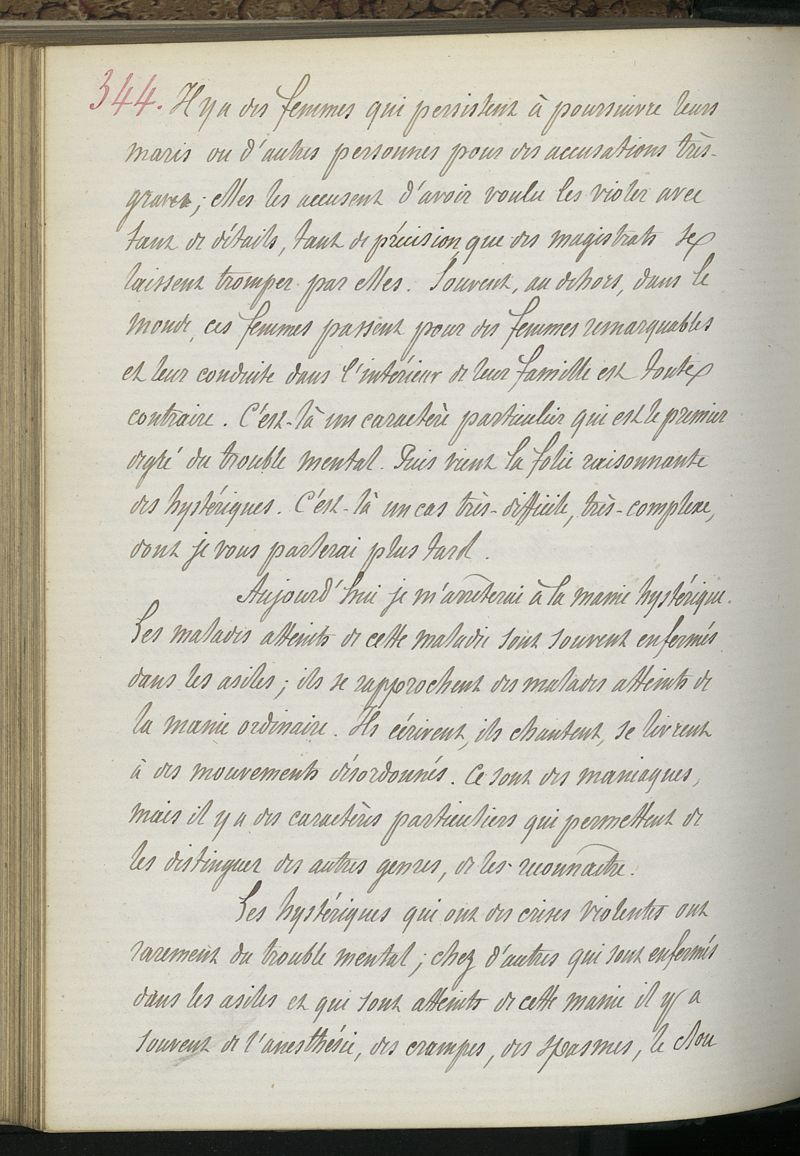 344. Il y a des femmes qui persistent à poursuivre leurs
maris ou d'autres personnes pour des accusations très-
graves; elles les accusent d'avoir voulu les violer avec
tant de détails, tant de précision que des magistrats se
laissent tromper par elles. Souvent, au dehors, dans le
monde, ces femmes passent pour des femmes remarquables
et leur conduite dans l'intérieur de leur famille est toute
contraire. C'est-là un caractère particulier qui est le premier
degré du trouble mental. Puis vient la folie raisonnante
des hystériques. C'est-là un cas très-difficile, très-complexe,
dont je vous parlerai plus tard.
Aujourd'hui je m'arrêterai à la manie hystérique.
Les malades atteints de cette maladie sont souvent enfermés
dans les asiles; ils se rapprochent des malades atteints de
la manie ordinaire. Ils écrivent, ils chantent, se livrent
à des mouvements désordonnés. Ce sont des maniaques,
mais il y a des caractères particuliers qui permettent de
les distinguer des autres genres, de les reconnaître.
Les hystériques qui ont des crises violentes ont
rarement du trouble mental; chez d'autres qui sont enfermés
dans les asiles et qui sont atteints de cette manie il y a
souvent de l'anesthésie, des crampes, des spasmes, le clou